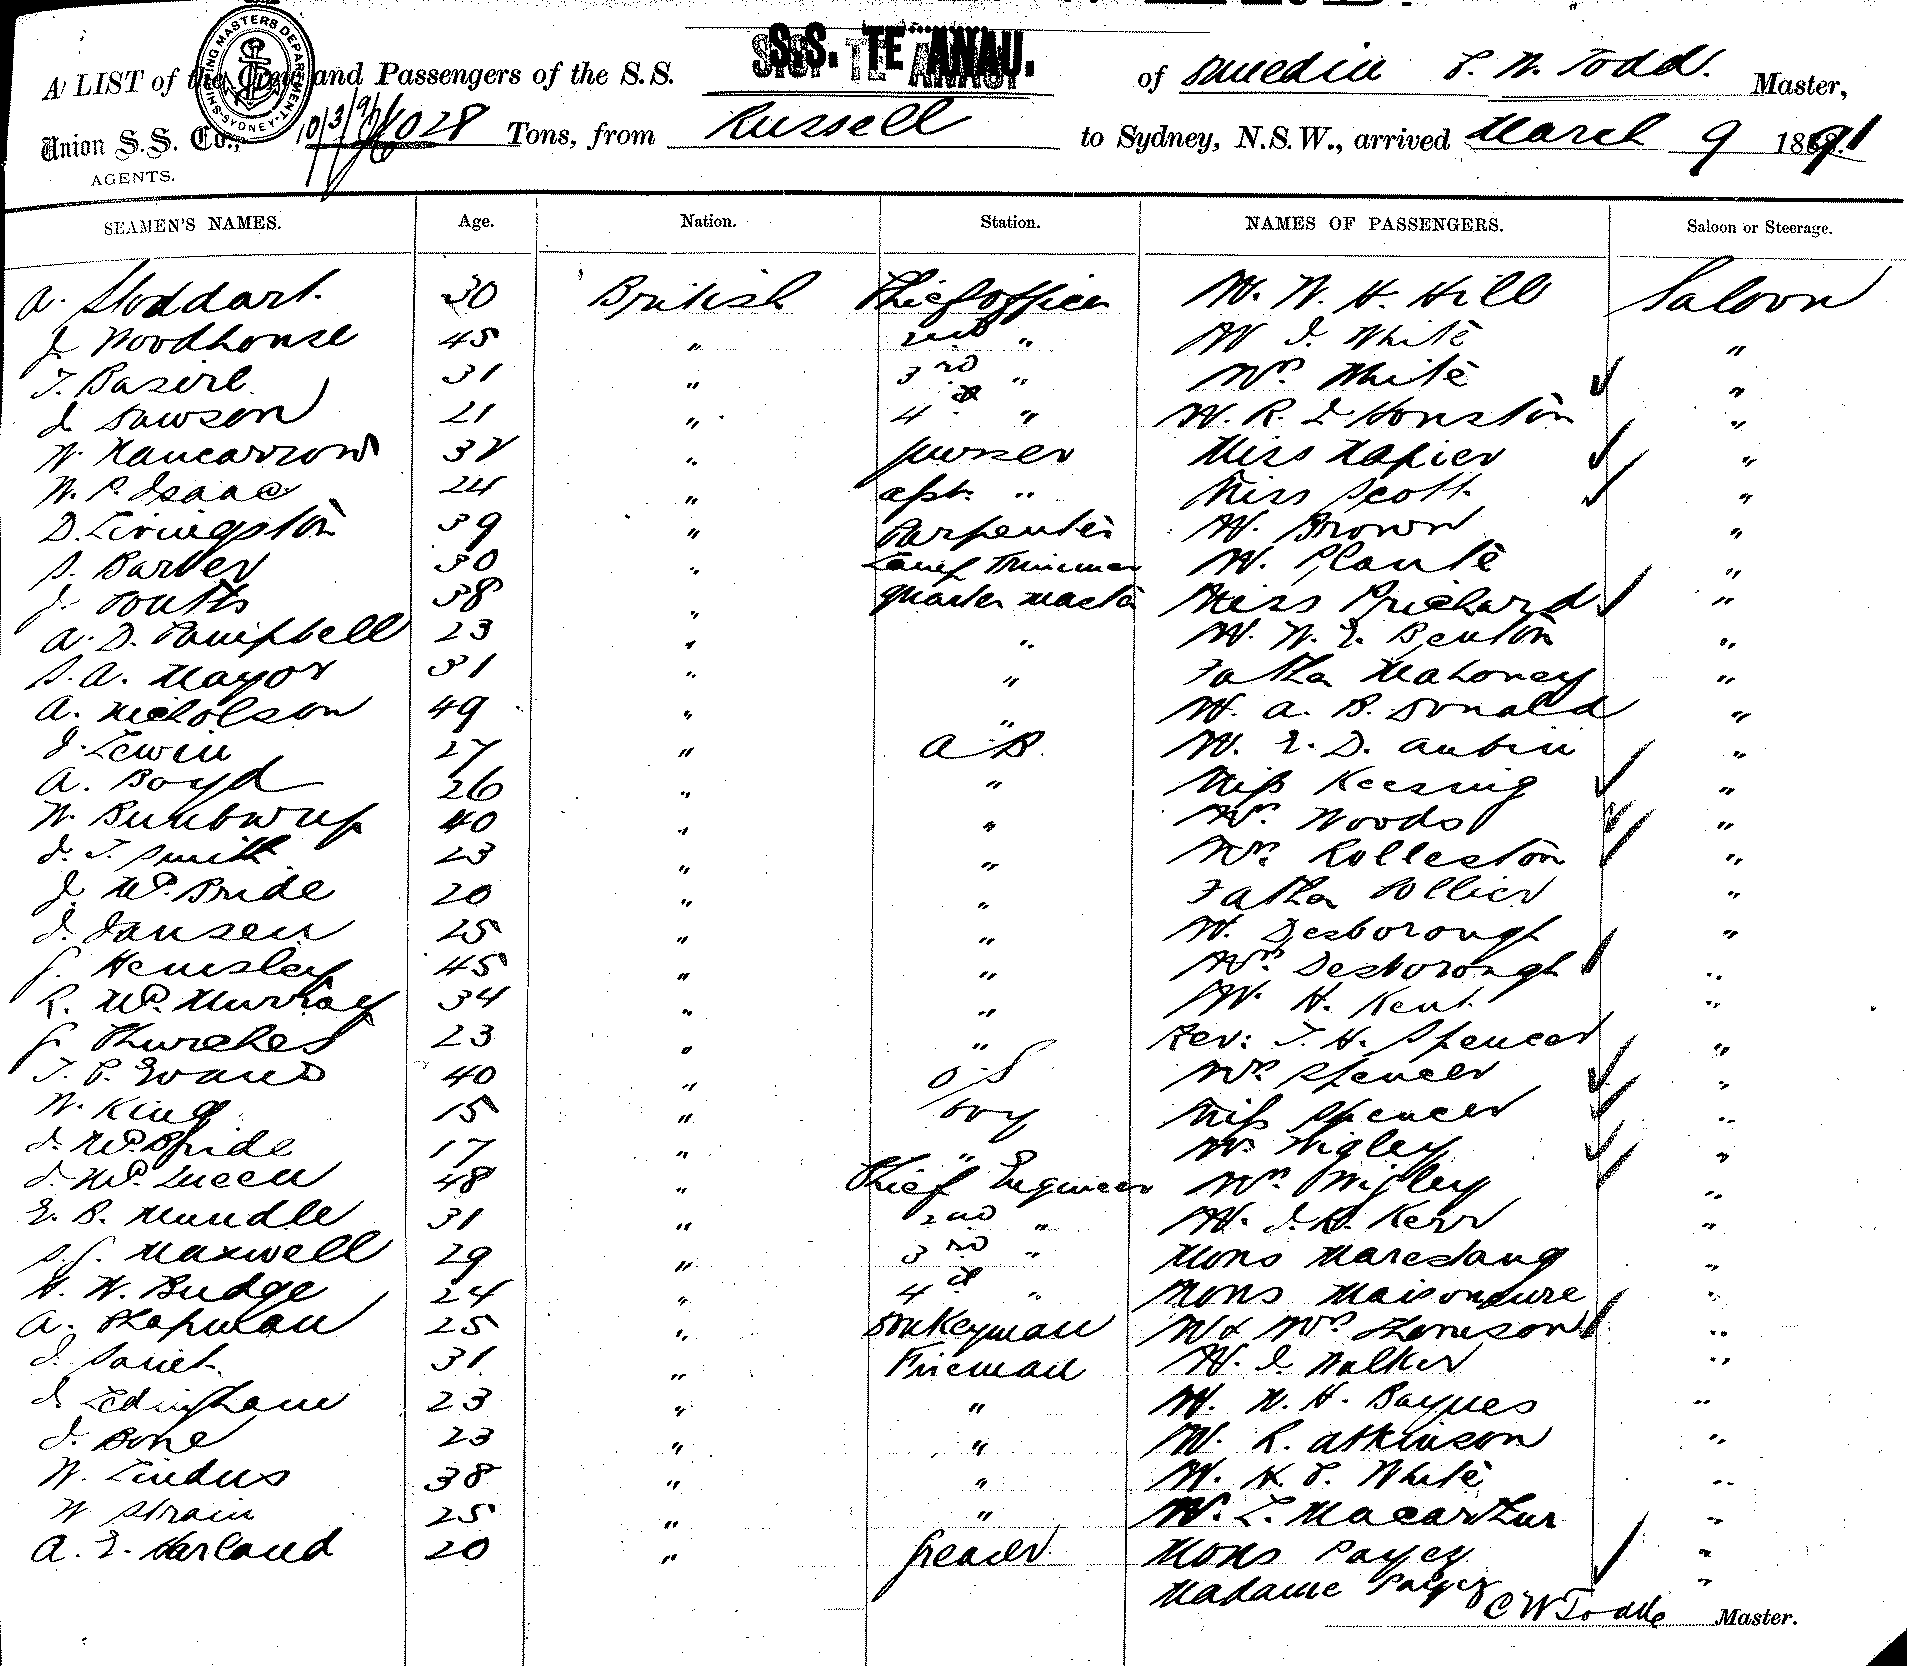 A LIST of the Crew and Passengers of the S.S. S.S. TE ANAU. of Dunedin C. W. Todd. Master,
Union S. S. Co., 1028 Tons, from Russell to Sydney, N.S.W., arrived March 9 1891
AGENTS.
SHIPPING MASTERS DEPARTMENT SYDNEY
10/3/91
SEAMEN'S NAMES. Age. Nation. Station. NAMES OF PASSENGERS. Saloon or Steerage.
A. Stoddart. 30 British Chief Officer Mr. W. H. Hill Saloon
J. Woodhouse 45 " 2nd " Mr J. White "
T. 31 " 3rd " Mrs White "
J Dawson 21 " 4th " Mr. R. J Houston "
W. Nancarrow 32 " purser Miss Napier "
W. P. Isaac 24 " asst. " Miss Scott "
D. Livingston 39 " Carpenter Mr. Brown "
S. Barber 30 " Mr. Plante "
J. Coutts 38 " Quarter master Miss Prichard "
A. D. Campbell 23 " " Mr. W. E. Benton "
S. A. Mayor 31 " " Father Mahoney "
A. Nicholson 49 " " Mr. A. B. Donald "
J. Lewin 27 " A B. Mr. E. D. Aubin "
A. Boyd 26 " " Miss Keesing "
W. 40 " " Mrs. Woods "
J. T. Smith 23 " " Mrs Rolleston "
J. McBride 20 " " Father Collier "
J. Jansen 25 " " Mr. Desborough "
G. Hemsley 45 " " Mrs. Desborough "
R. McMurray 34 " " Mr. H. Kent "
G. Thurches 23 " " Rev: T. H. Spencer "
T. P. Evans 40 " O.S Mrs Spencer "
W. King 15 " boy Miss Spencer "
J. McBride 17 " " Mr. Wigley "
J. McQueen 48 " Chief Engineer Mrs Wigley "
E. B. Mundle 31 " 2nd " Mr. J. R. Kerr "
S. G. Maxwell 29 " 3rd " Mons Marestang "
W. W. Budge 24 " 4th " Mons Maisonneuve "
A. Chapman 25 " Donkeyman Mr & Mrs "
J. 31 " Fireman Mr. J. Walker "
J Ledingham 23 " " Mr. W. H. Baynes "
J. Bone 23 " " Mr. R. Atkinson "
W. Lindus 38 " " Mr. H. P. White "
W Strain 25 " " Mr. L. Macarthur "
A. E. Harland 20 " Greaser Mons Payez "
Madame Payez "
C W Todd Master.